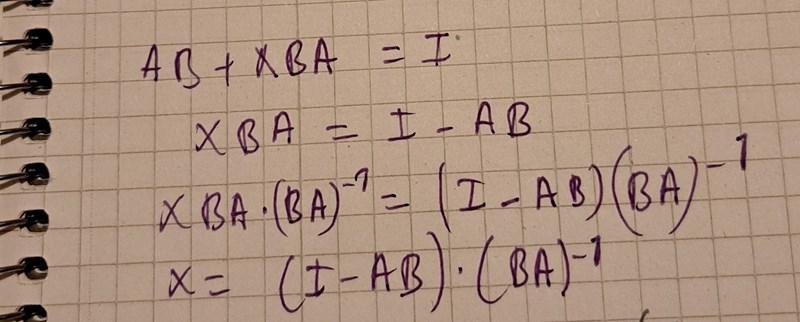 AB + XBA = I
XBA = I - AB
XBA·(BA)⁻¹ = (I - AB)(BA)⁻¹
X = (I - AB)·(BA)⁻¹